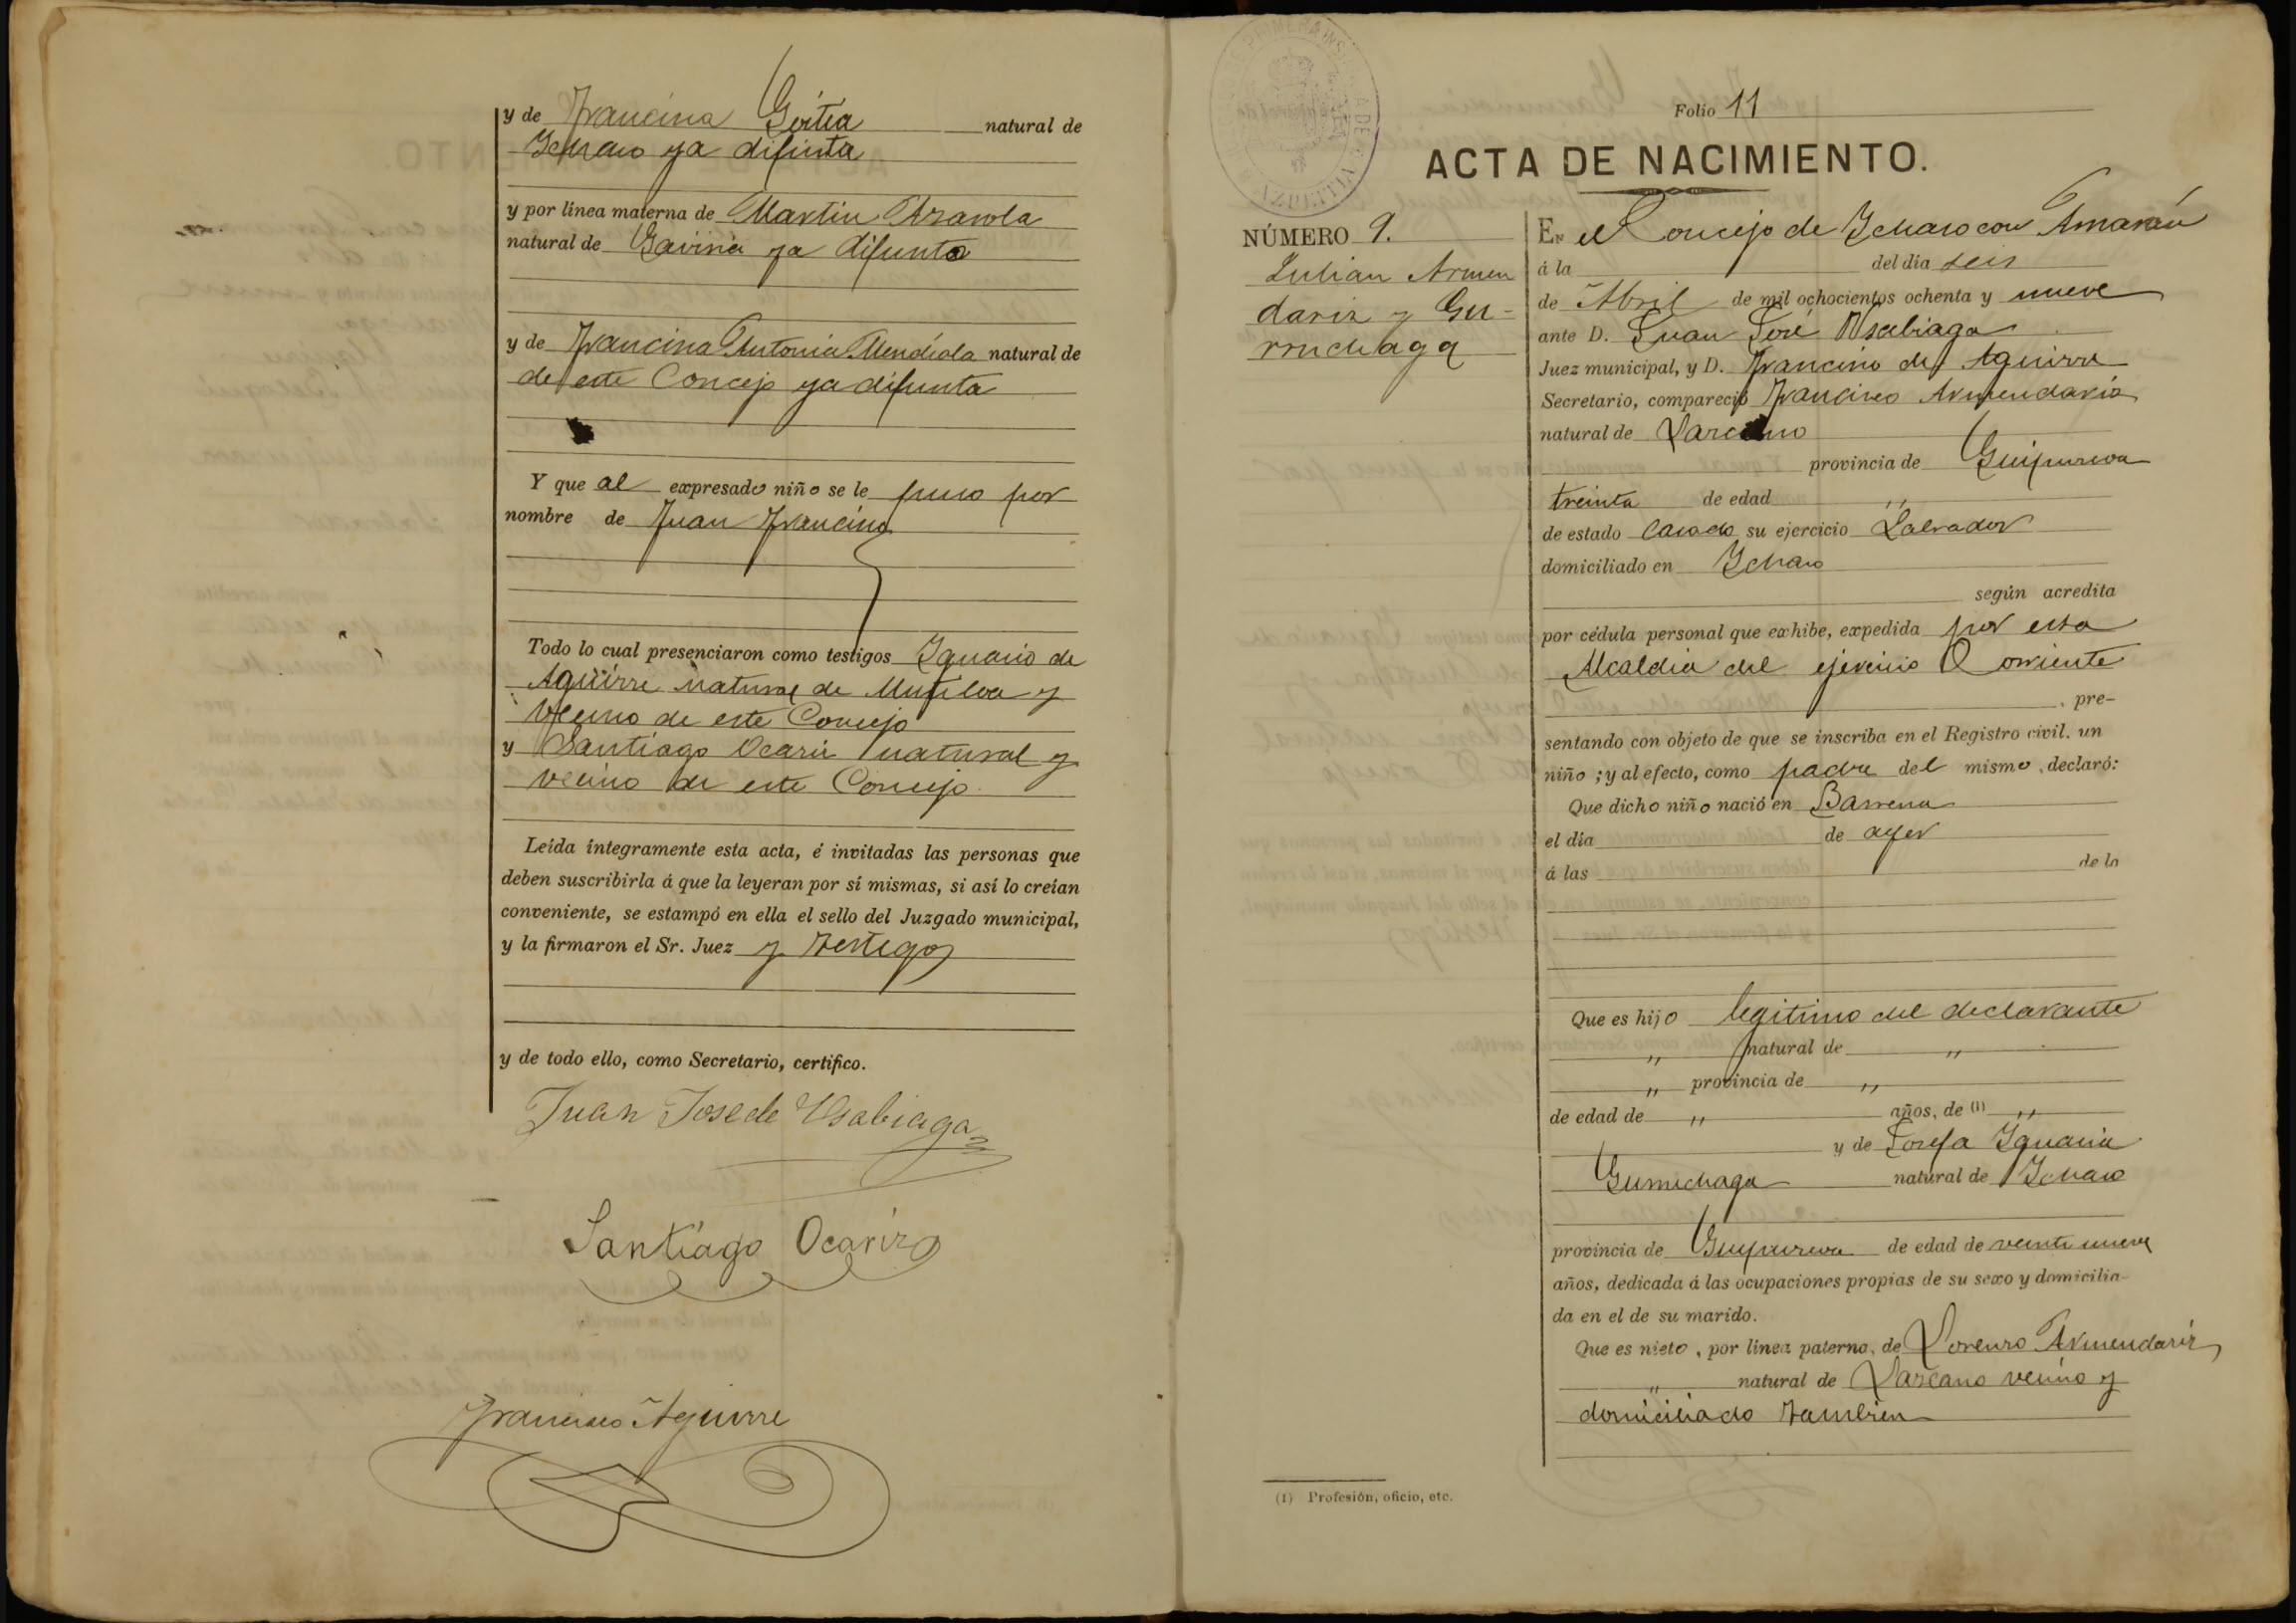 y de Francisca Goitia natural de
Ichaso ya difunta
y por línea materna de Martin Arsarola
natural de Gaviria ya difunto
y de Francisca Antonia Mendiola natural de
de este Concejo ya difunta
Y que al expresado niño se le puso por
nombre de Juan Francisco
Todo lo cual presenciaron como testigos Ignacio de
Aguirre natural de Mutiloa y
vecino de este Concejo
y Santiago Ocariz natural y
vecino de este Concejo
Leída íntegramente esta acta, é invitadas las personas que
deben suscribirla á que la leyeran por sí mismas, si así lo creían
conveniente, se estampó en ella el sello del Juzgado municipal,
y la firmaron el Sr. Juez y testigos
y de todo ello, como Secretario, certifico.
Juan Jose de Usabiaga
Santiago Ocariz
Francisco Aguirre
Folio 11
ACTA DE NACIMIENTO.
NÚMERO 9.
Julian Armen
dariz y Gu-
rruchaga
En el Concejo de Ichaso con Amarán
á la del día seis
de Abril de mil ochocientos ochenta y nueve
ante D. Juan José Usabiaga
Juez municipal, y D. Francisco de Aguirre
Secretario, compareció Francisco Armendariz
natural de Larcano
provincia de Guipuzcoa
treinta de edad ,,
de estado Casado su ejercicio Labrador
domiciliado en Ichaso
según acredita
por cédula personal que exhibe, expedida por esta
Alcaldia del ejercicio Corriente
, pre-
sentando con objeto de que se inscriba en el Registro civil. un
niño ; y al efecto, como padre del mismo, declaró:
Que dicho niño nació en Barrena
el día de ayer
á las de la
Que es hijo legitimo del declarante
,, natural de ,,
,, provincia de ,,
de edad de ,, años, de (1) ,,
y de Josefa Ignacia
Gurruchaga natural de Ichaso
provincia de Guipuzcoa de edad de veinte nueve
años, dedicada á las ocupaciones propias de su sexo y domicilia-
da en el de su marido.
Que es nieto, por línea paterna, de Lorenzo Armendariz
,, natural de Lazcano vecino y
domiciliado tambien
(1) Profesión, oficio, etc.